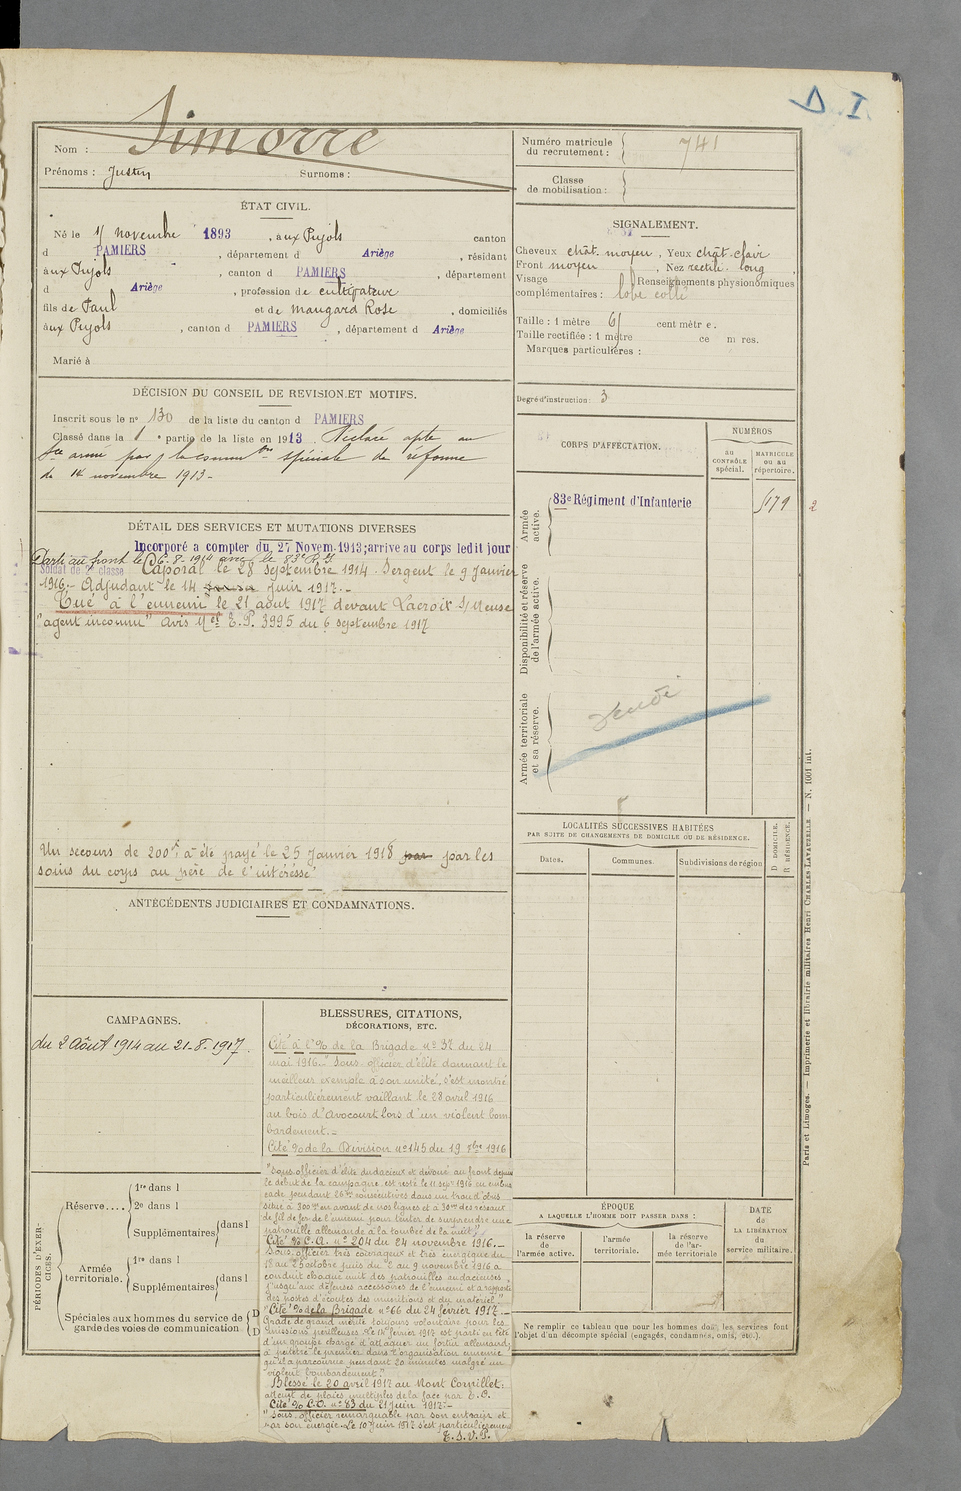 I. A
Simorre
Nom :
Prénoms : Justin Surnoms :
Numéro matricule
du recrutement : 741
Classe
de mobilisation :
ÉTAT CIVIL.
Né le 11 novembre 1893, aux Pujols canton
d PAMIERS, département d Ariège, résidant
aux Pujols, canton d PAMIERS, département
d Ariège, profession de cultivateur
fils de Paul et de Maugard Rose, domiciliés
aux Pujols, canton d PAMIERS, département d Ariège
Marié à
SIGNALEMENT.
Cheveux chât. moyen, Yeux chât. clair
Front moyen, Nez rectil. long,
Visage Renseignements physionomiques
complémentaires : lobe collé
Taille : 1 mètre 61 centimètre.
Taille rectifiée : 1 mètre ce m res.
Marques particulières :
Degré d'instruction : 3
DÉCISION DU CONSEIL DE REVISION ET MOTIFS.
Inscrit sous le no 130 de la liste du canton d PAMIERS
Classé dans la 1 e partie de la liste en 1913. Déclaré apte au
Sce armé par la comm on spéciale de réforme
du 14 novembre 1913-
DÉTAIL DES SERVICES ET MUTATIONS DIVERSES
Incorporé à compter du 27 Novem. 1913; arrivé au corps ledit jour
Parti au front le 6.8.1914 avec le 83e R.I.
Soldat de 2e classe Caporal le 28 septembre 1914. Sergent le 9 janvier
1916.- Adjudant le 14 juin 1917.-
"Tué à l'ennemi" le 21 août 1917 devant Lacroix S/Meuse
"agent inconnu" Avis Mel E.P. 3995 du 6 septembre 1917
Un secours de 200 frs a été payé le 25 Janvier 1918 par par les
soins du corps au père de l'intéressé
CORPS D'AFFECTATION.
NUMÉROS
au
CONTRÔLE
spécial.
MATRICULE
ou au
répertoire.
Armée
active.
83e Régiment d'Infanterie
5179
2
Disponibilité et réserve
de l'armée active.
Armée territoriale
et sa réserve.
LOCALITÉS SUCCESSIVES HABITÉES
PAR SUITE DE CHANGEMENTS DE DOMICILE OU DE RÉSIDENCE.
Dates. Communes. Subdivisions de région
D DOMICILE.
R RÉSIDENCE.
ANTÉCÉDENTS JUDICIAIRES ET CONDAMNATIONS.
CAMPAGNES.
du 2 Août 1914 au 21-8-1917.
BLESSURES, CITATIONS,
DÉCORATIONS, ETC.
Cité à l'% de la Brigade no 32 du 24
mai 1916.- "Sous-officier d'élite donnant le
meilleur exemple à son unité, s'est montré
particulièrement vaillant le 28 avril 1916
au bois d'Avocourt lors d'un violent bom
bardement.-
Cité % de la Division no 145 du 19 7bre 1916
"Sous officier d'élite audacieux et dévoué au front depuis
le début de la campagne est resté le 11 sept 1916 en embus
cade pendant 26 h consécutives dans un trou d'obus
situé à 300 m en avant de nos lignes et à 30 m des réseaux
de fil de fer de l'ennemi pour tenter de surprendre une
patrouille allemande à la tombée de la nuit"
Cité % C.A. no 204 du 24 novembre 1916.-
"Sous officier très courageux et très énergique du
18 au 25 octobre puis du 2 au 9 novembre 1916 a
conduit chaque nuit des patrouilles audacieuses
jusqu'aux défenses accessoires de l'ennemi et a rapporté
des postes d'écoutes des munitions et du matériel."
Cité % de la Brigade no 66 du 24 février 1917.-
Gradé de grand mérite toujours volontaire pour les
missions périlleuses. Le 14 février 1917 est parti en tête
d'un groupe chargé d'attaquer un fortin allemand;
a pénétré le premier dans l'organisation ennemie
qu'il a parcourue pendant 20 minutes malgré un
violent bombardement."
Blessé le 20 avril 1917 au Mont Cornillet:
atteint de plaies multiples de la face par E.O.
Cité % C.A. no 83 du 21 juin 1917.-
"Sous officier remarquable par son entrain et
par son énergie. Le 10 juin 1917 s'est particulièrement
T.S.V.P.
PÉRIODES D'EXER-
CICES.
Réserve....
1re dans l
2e dans l
Supplémentaires dans l
Armée
territoriale.
1re dans l
Supplémentaires dans l
Spéciales aux hommes du service de
garde des voies de communication
ÉPOQUE
A LAQUELLE L'HOMME DOIT PASSER DANS :
la réserve
de
l'armée active.
l'armée
territoriale.
la réserve
de l'ar-
mée territoriale
DATE
de
LA LIBÉRATION
du
service militaire.
Ne remplir ce tableau que pour les hommes dont les services font
l'objet d'un décompte spécial (engagés, condamnés, omis, etc.).
Paris et Limoges. — Imprimerie et librairie militaires Henri CHARLES-LAVAUZELLE. — N. 1001 int.